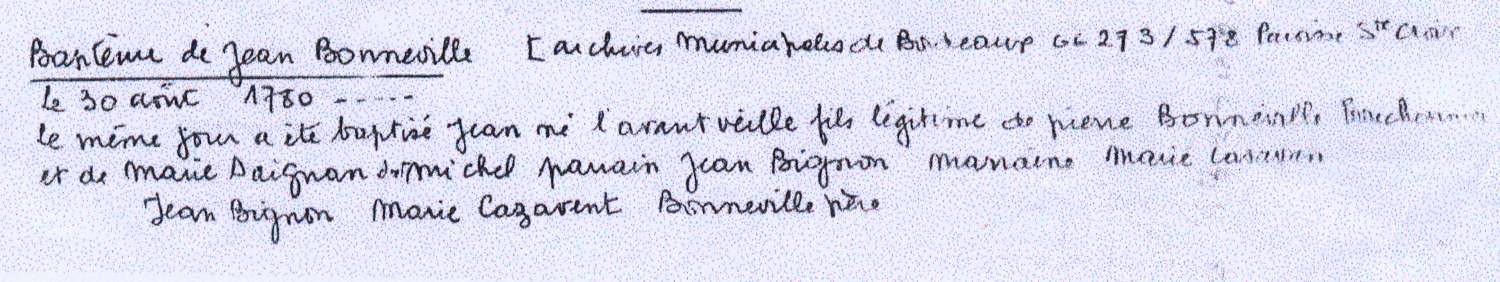 Baptême de Jean Bonneville [archives Municipales de Bordeaux GG 273/578 Paroisse Ste Croix
le 30 août 1780 -----
le même jour a été baptisé Jean né l'avant veille fils légitime de pierre Bonneville
et de Marie Daignan de Michel parrain Jean Bignon marraine Marie Casavan
Jean Bignon Marie Cazavent Bonneville père